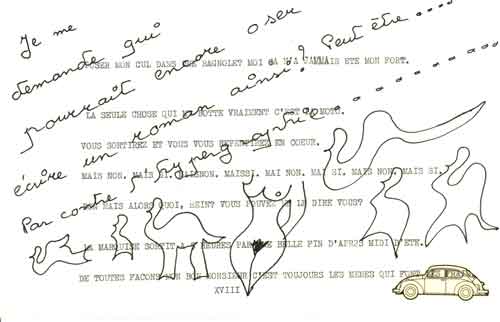 Je me
demande qui
pourrait encore oser
écrire un roman ainsi? Peut être ....
Par contre
POSER MON CUL DANS UNE BAGNOLET MOI N'A ETE MON FORT.
LA SEULE CHOSE QUI ME BOTTE C'EST MOTO.
VOUS SORTIREZ ET VOUS VOUS REPENTIREZ EN COEUR.
MAIS NON. MAIS SI. MAISNON. MAISSI. MAI NON. MAI SI. MAIS NON. MAIS SI.
MAIS ALORS QUOI, HEINT VOUS POUVEZ LE DIRE VOUS?
LA MARQUISE SORTIT A HEURES PAR BELLE D'APRUS MIDI D'ETE.
DE TOUTES FACONS MON BON MONSIEUR C'EST TOUJOURS LES MEMES QUI FONT
XVIII